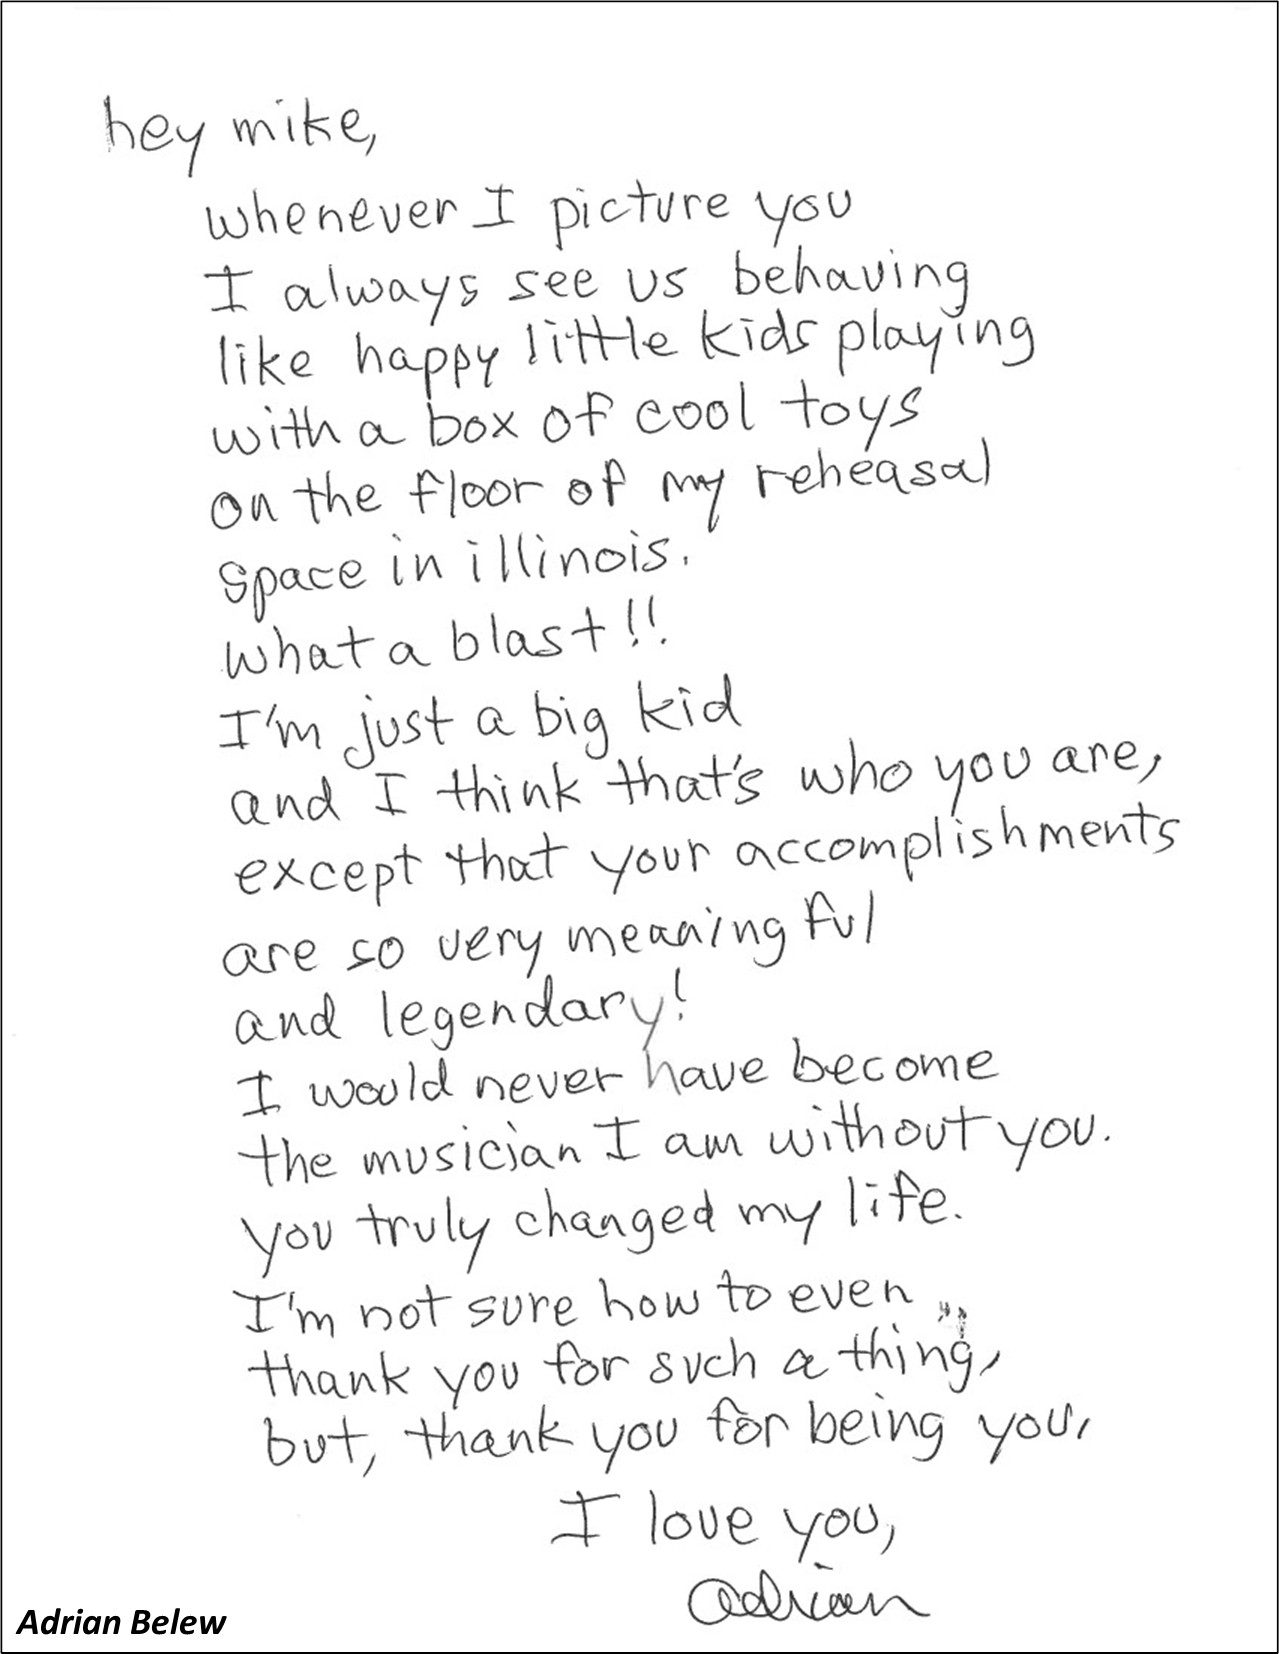 hey mike,
whenever I picture you
I always see us behaving
like happy little kids playing
with a box of cool toys
on the floor of my reheasal
space in illinois.
what a blast!!
I'm just a big kid
and I think that's who you are,
except that your accomplishments
are so very meaningful
and legendary!
I would never have become
the musician I am without you.
you truly changed my life.
I'm not sure how to even
thank you for such a thing,
but, thank you for being you,
I love you,
adrian
Adrian Belew